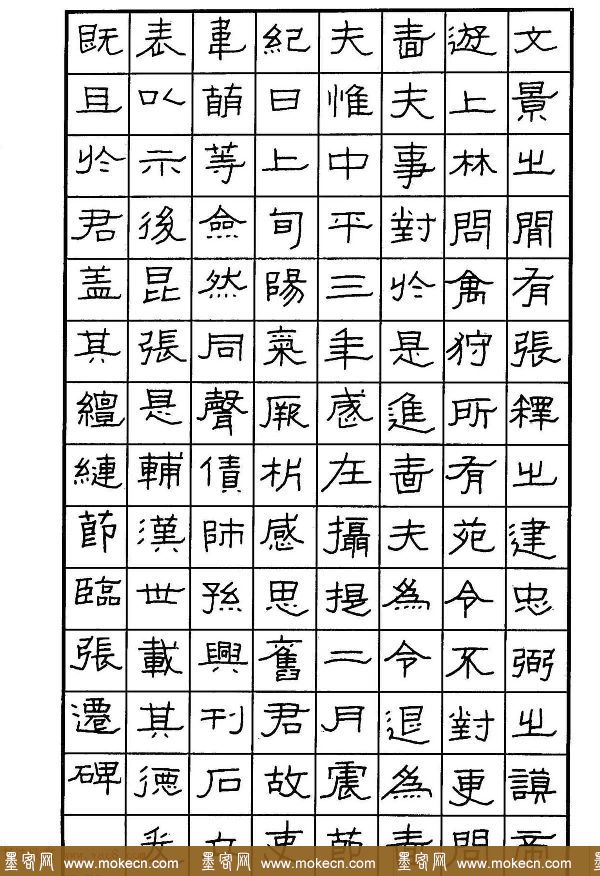 文景之間有張釋之建忠弼之謨帝
遊上林問禽狩所有苑令不對更問
嗇夫事對於是進嗇夫為令退為嗇
夫惟中平三年歲在攝提二月震節
紀日上旬陽氣厥析感思舊君故吏
韋萌等僉然同聲債師孫興刊石立
表以示後昆張是輔漢世載其德爰
既且於君盖其繵縺節臨張遷碑
墨客网 www.mokecn.com 墨客网 www.mokecn.com 墨客网 www.mokecn.com